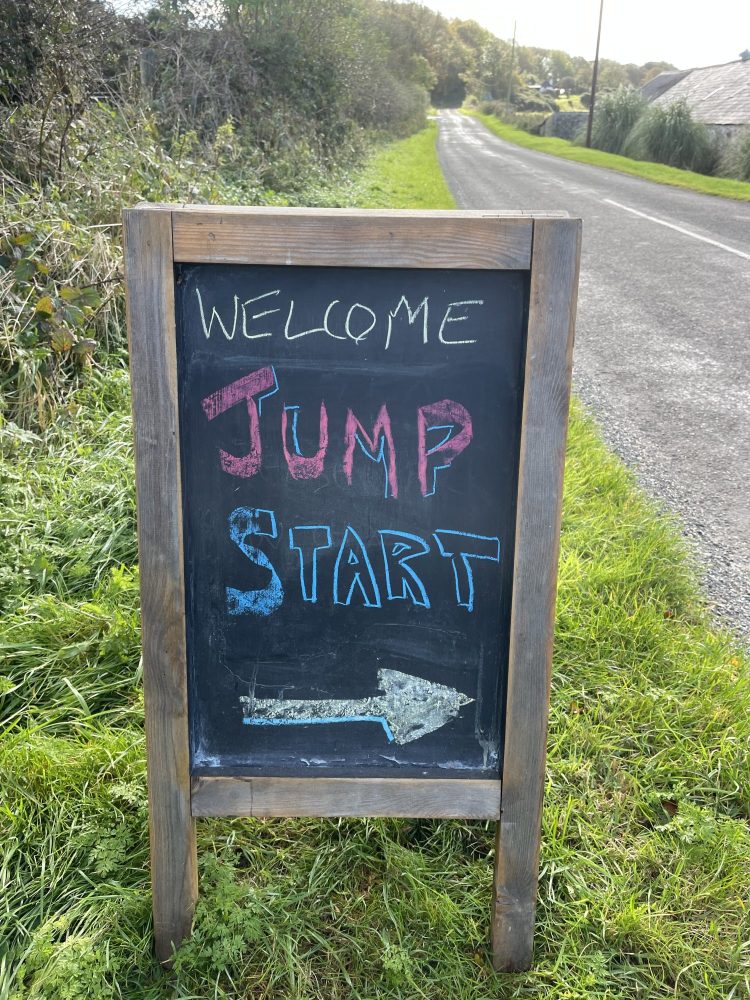 WELCOME
JUMP
START